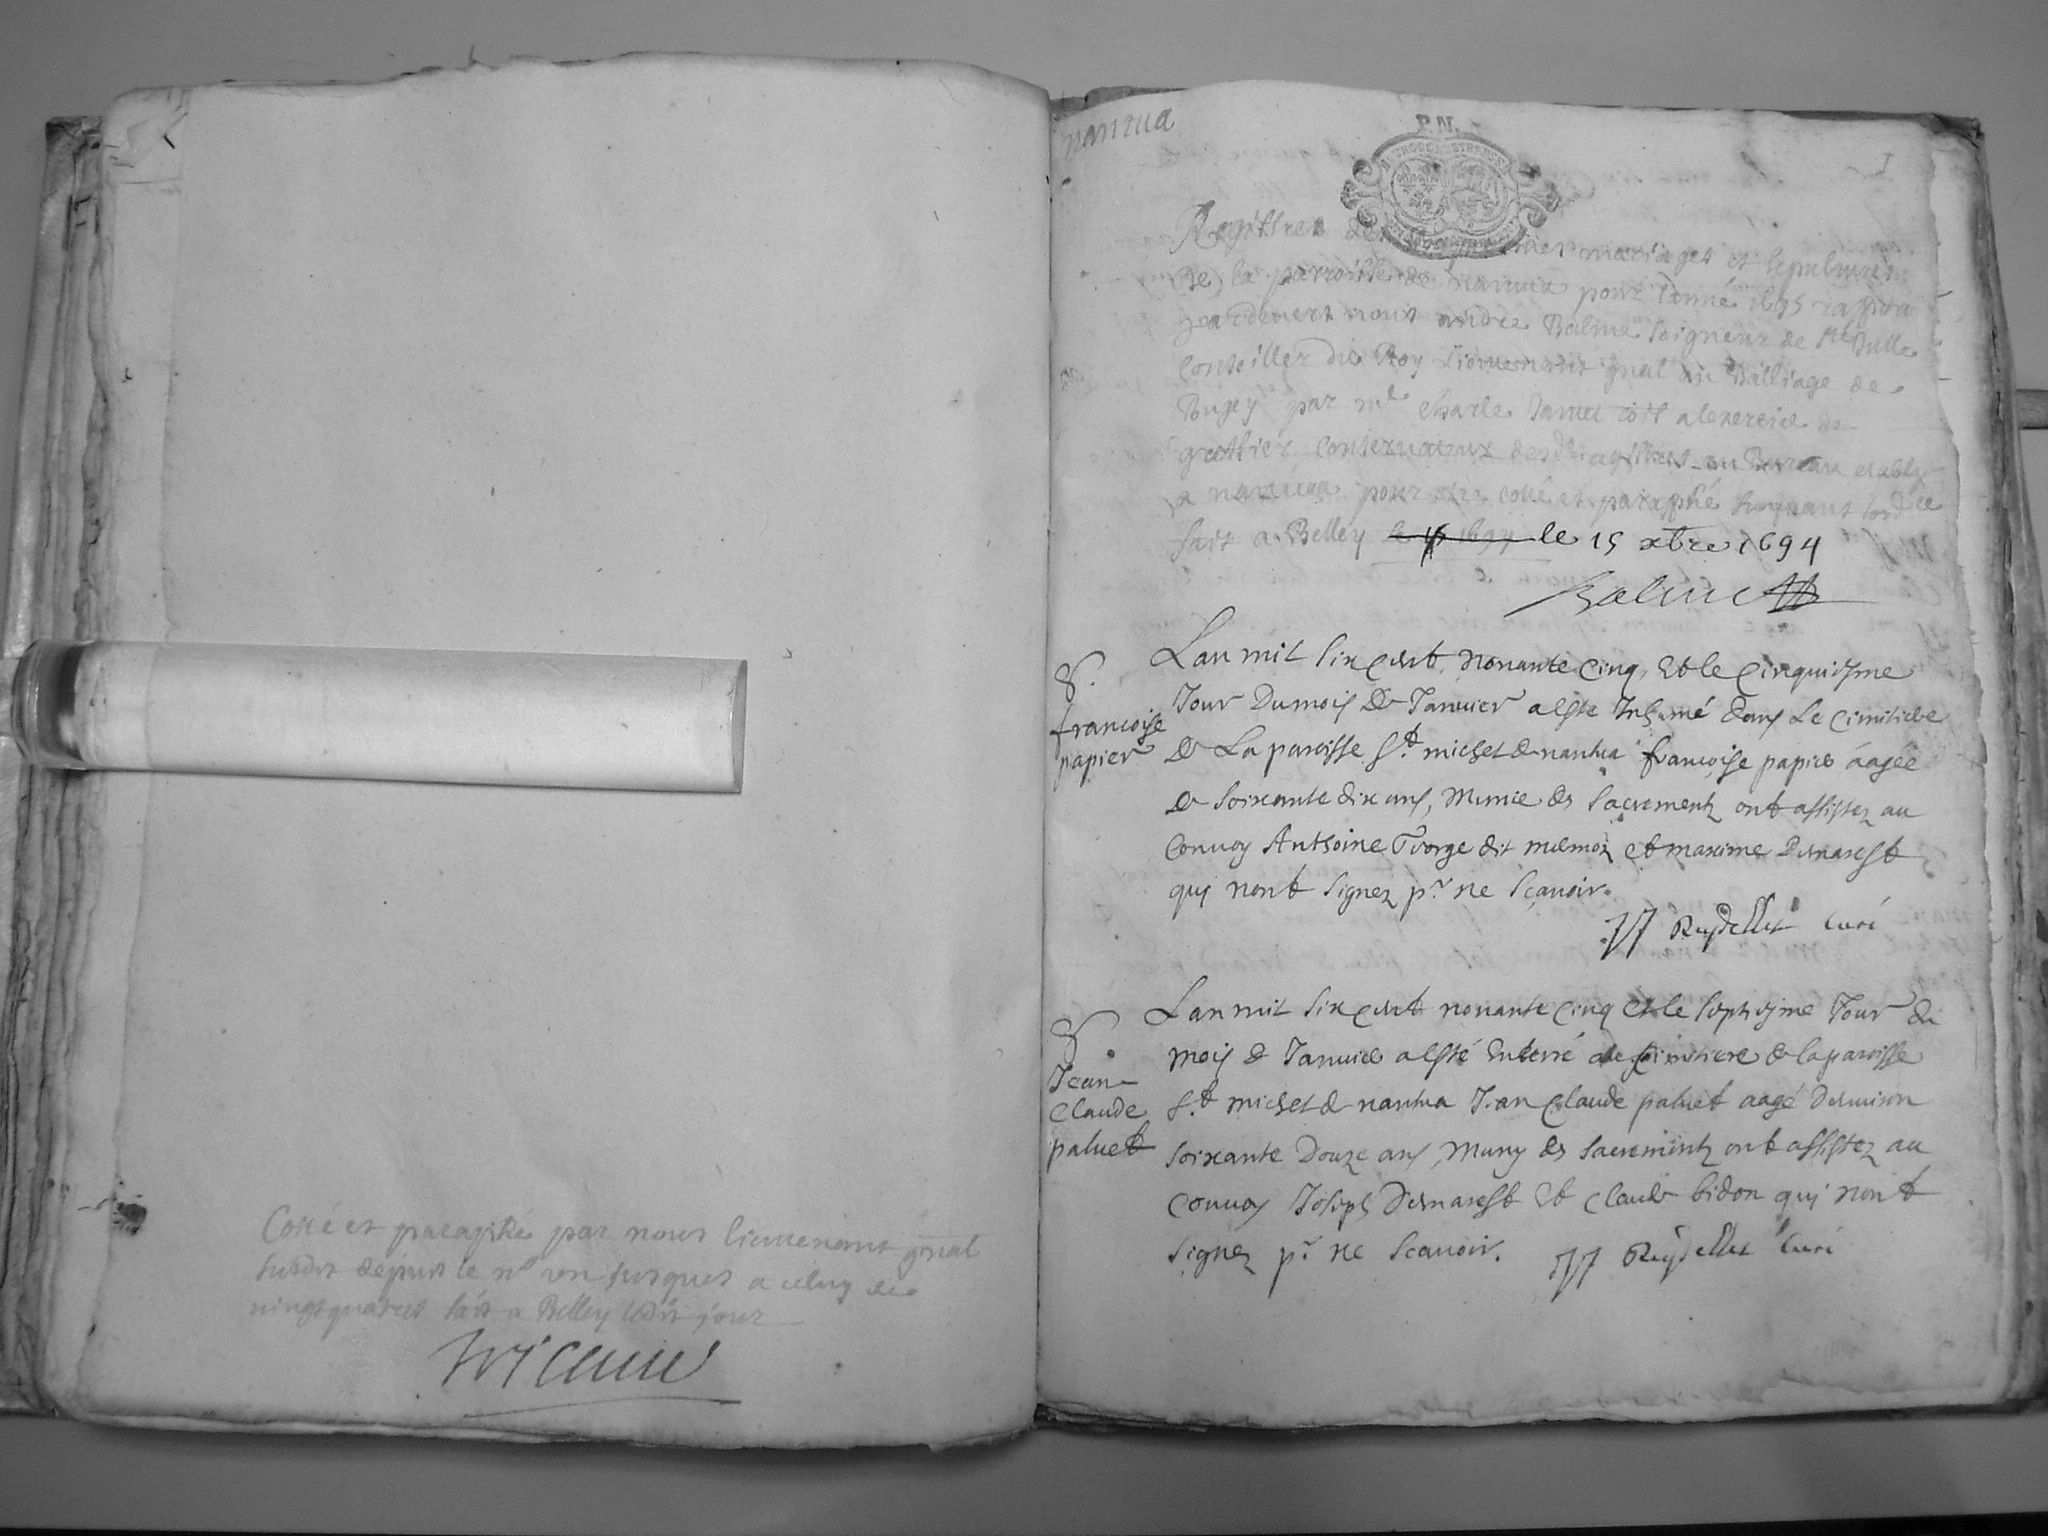 Cotté et paraphé par nous lieutenant gnal
susdit depuis le n° un jusques a celuy de
vingtquatre fait a Belley ledit jour
nantua
P.N.
1
Registres des mariages et sepulture
de la parroisse de nantua pour l'année 1695
par devant nous andre Balme seigneur de Ste Julle
Conseiller du Roy Lieutenant gnal au Balliage de
Bugey par me Charle Janet
greffier conservateur des registres au Bureau etably
a nantua pour etre cotté et paraphé suyvant
fait a Belley le 15 xbre 1694
Balme
Lan mil six cent nonante cinq, et le cinquiesme
S.
francoise
papier
Jour du mois de Janvier a este Inhumé dans le cimitiere
de La paroisse St. michel de nantua francoise papier aagée
de soixante dix ans, munie des sacrements ont assistez au
Convoy Anthoine George dit et maxime Dernarest
qui nont signez pr. ne scavoir.
Ruydellet Curé
S.
Jean
Claude
paluet
Lan mil six cent nonante cinq et le septiesme Jour du
mois de Janvier a esté Enterré au cimitiere de la paroisse
St. michel de nantua Jean Claude paluet aagé denviron
soixante douze ans, muny des sacrements ont assistez au
Convoy Joseph Dernarest et claude bidon qui nont
signez pr. ne scavoir. Ruydellet Curé